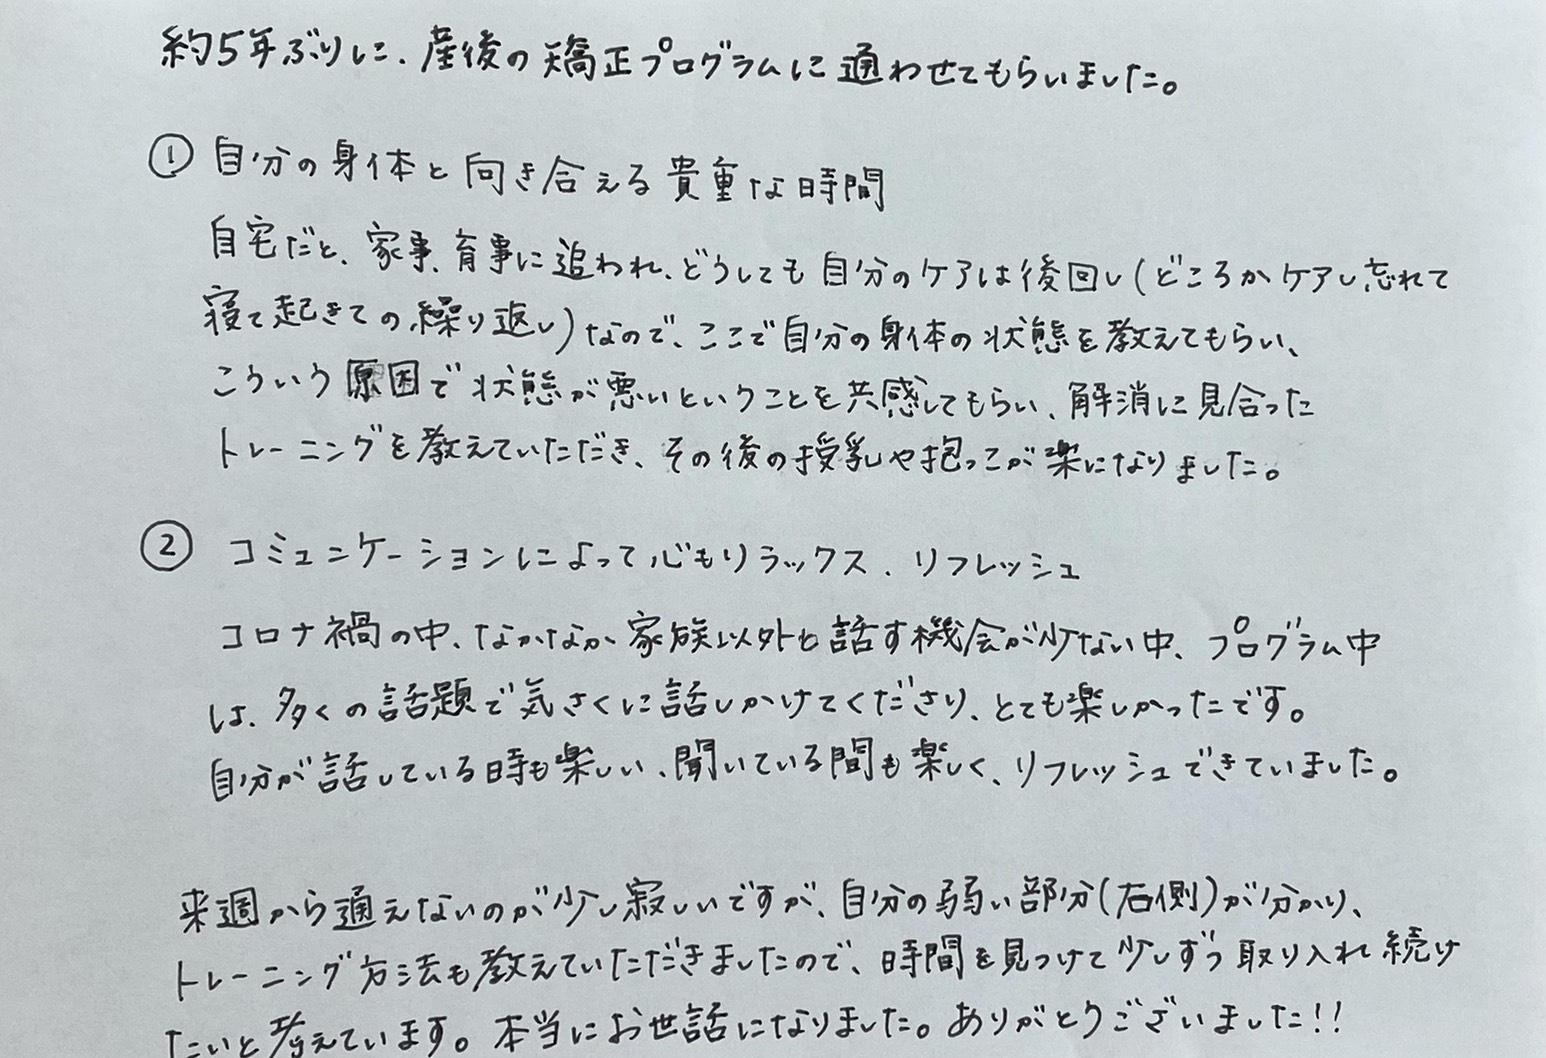 約5年ぶりに、産後の矯正プログラムに通わせてもらいました。
① 自分の身体と向き合える貴重な時間
自宅だと、家事、育事に追われ、どうしても自分のケアは後回し(どころかケアし忘れて
寝て起きての繰り返し)なので、ここで自分の身体の状態を教えてもらい、
こういう原因で状態が悪いということを共感してもらい、解消に見合った
トレーニングを教えていただき、その後の授乳や抱っこが楽になりました。
② コミュニケーションによって心もリラックス、リフレッシュ
コロナ禍の中、なかなか家族以外と話す機会が少ない中、プログラム中
は、多くの話題で気さくに話しかけてくださり、とても楽しかったです。
自分が話している時も楽しい、聞いている間も楽しく、リフレッシュできていました。
来週から通えないのが少し寂しいですが、自分の弱い部分(右側)が分かり、
トレーニング方法も教えていただきましたので、時間を見つけて少しずつ取り入れ続け
たいと考えています。本当にお世話になりました。ありがとうございました!!